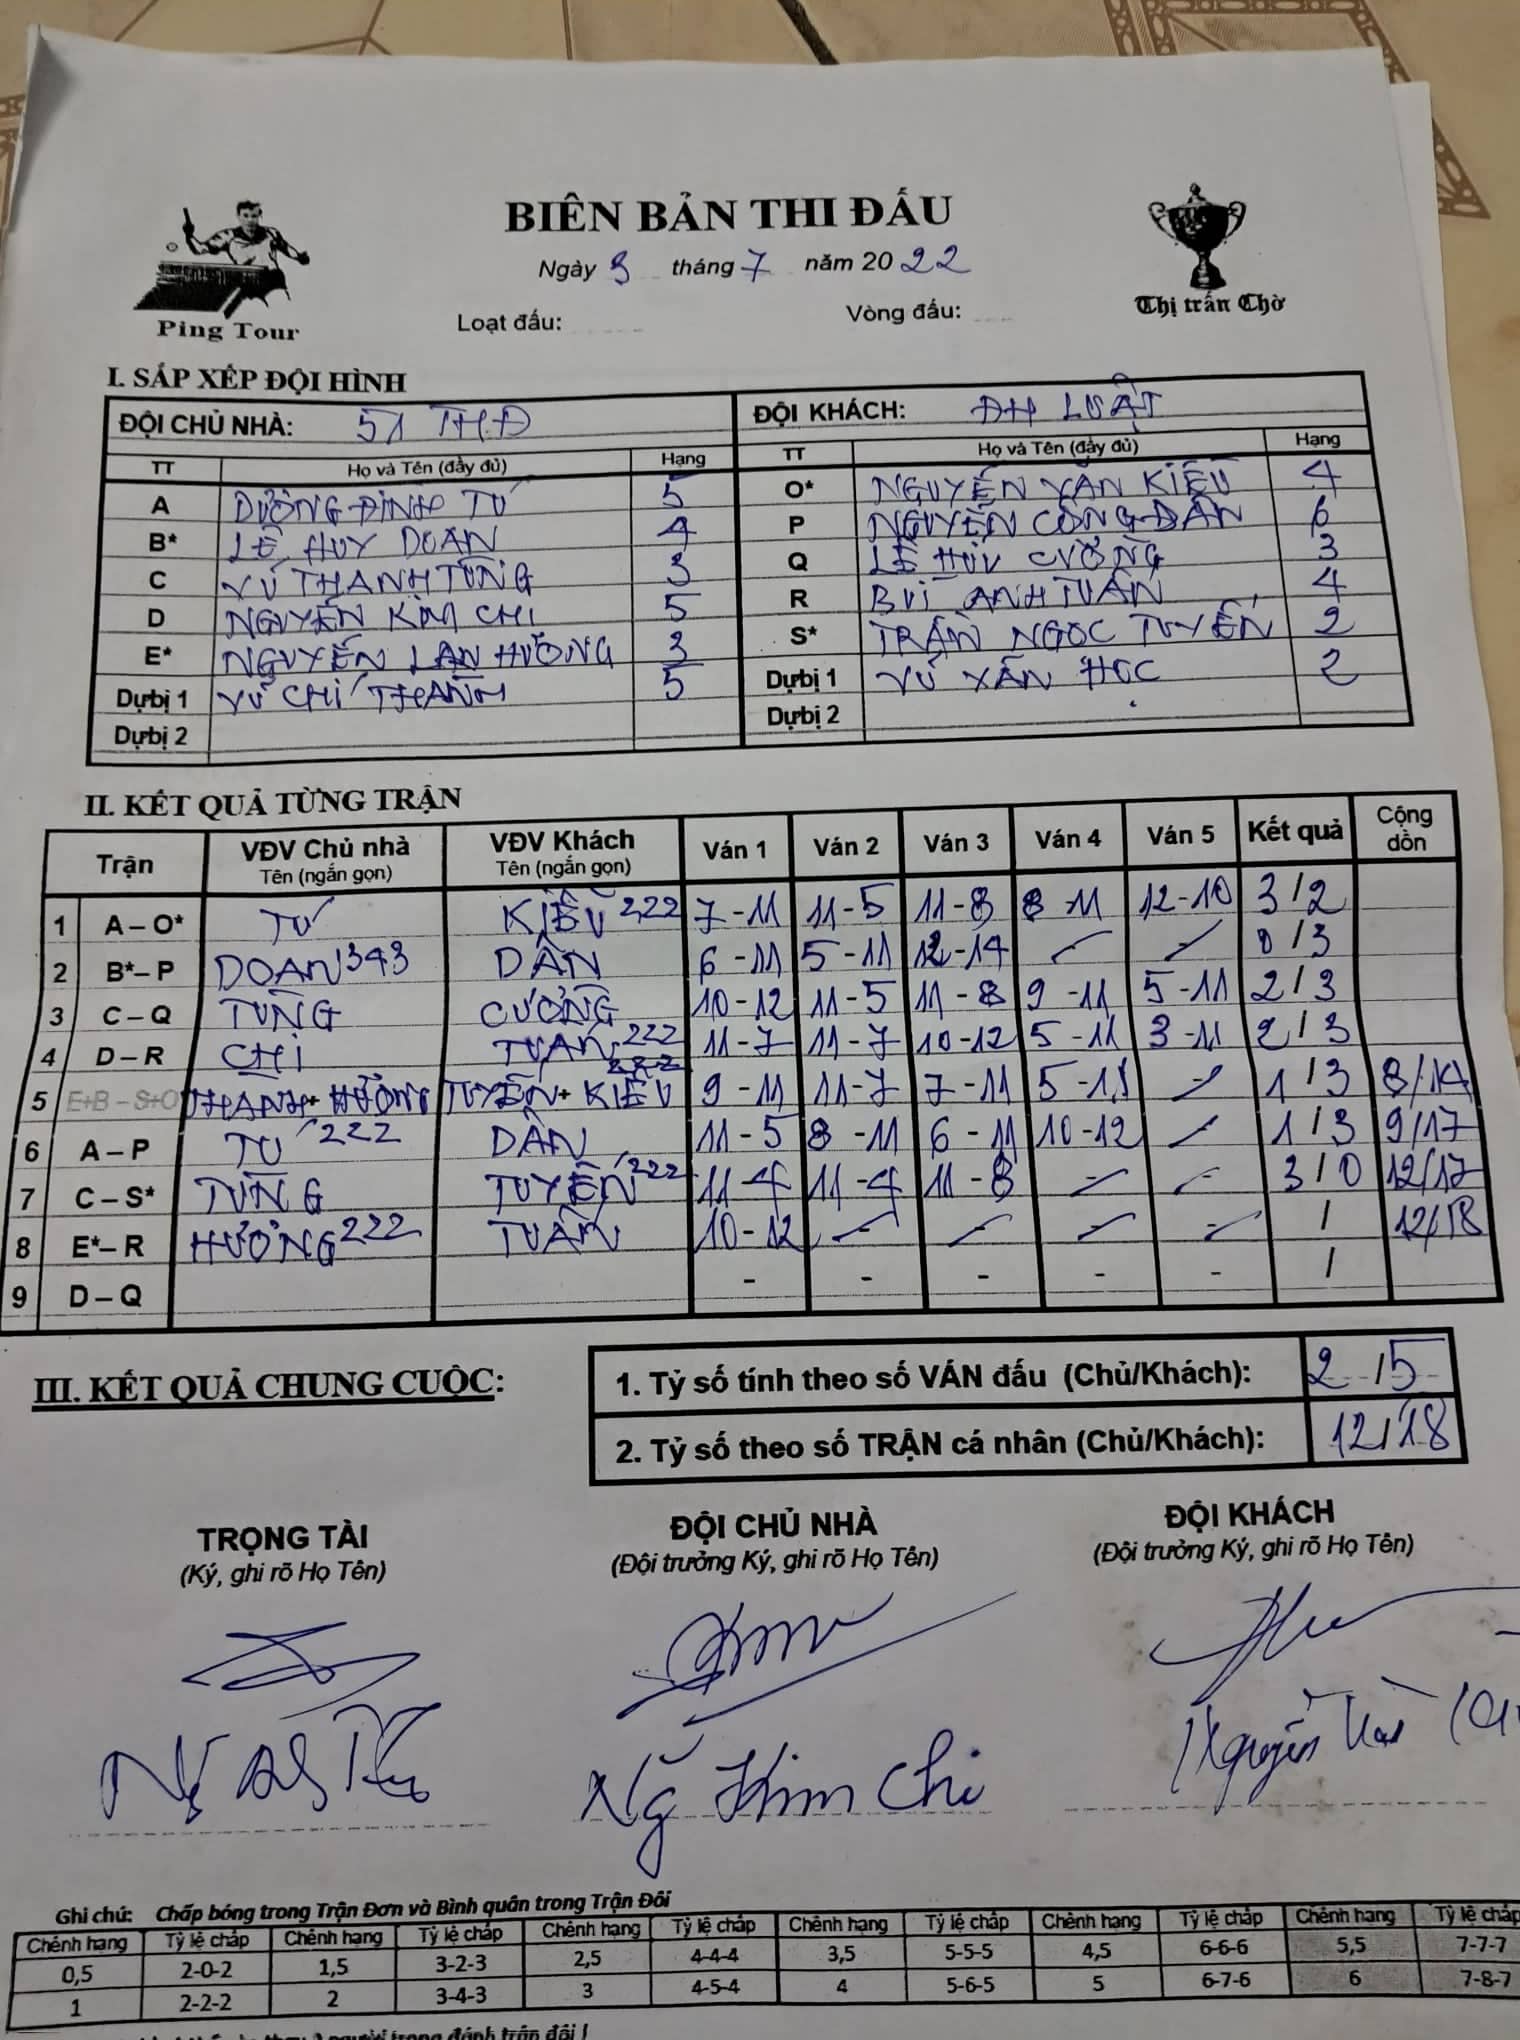 BIÊN BẢN THI ĐẤU
Ngày 3 tháng 7 năm 20 22
Ping Tour
Thị trấn Chờ
Loạt đấu: Vòng đấu:
I. SẮP XẾP ĐỘI HÌNH
ĐỘI CHỦ NHÀ: 51 THĐ ĐỘI KHÁCH: ĐH LUẬT
TT Họ và Tên (đầy đủ) Hạng TT Họ và Tên (đầy đủ) Hạng
A DƯƠNG ĐÌNH TÚ 5 O* NGUYỄN VĂN KIỀU 4
B* LÊ HUY DOAN 4 P NGUYỄN CÔNG DÂN 6
C VŨ THANH TÙNG 3 Q LÊ HỮU CƯỜNG 3
D NGUYỄN KIM CHI 5 R BÙI ANH TUẤN 4
E* NGUYỄN LAN HƯƠNG 3 S* TRẦN NGỌC TUYẾN 2
Dự bị 1 VŨ CHÍ THANH 5 Dự bị 1 VŨ XUÂN HỌC 2
Dự bị 2 Dự bị 2
II. KẾT QUẢ TỪNG TRẬN
Trận VĐV Chủ nhà Tên (ngắn gọn) VĐV Khách Tên (ngắn gọn) Ván 1 Ván 2 Ván 3 Ván 4 Ván 5 Kết quả Cộng dồn
1 A – O* TÚ KIỀU 222 7 - 11 11 - 5 11 - 8 8 - 11 12 - 10 3 / 2
2 B* – P DOAN 343 DÂN 6 - 11 5 - 11 12 - 14 - - 0 / 3
3 C – Q TÙNG CƯỜNG 10 - 12 11 - 5 11 - 8 9 - 11 5 - 11 2 / 3
4 D – R CHI TUẤN 222 11 - 7 11 - 7 10 - 12 5 - 11 3 - 11 2 / 3
5 E+B – S+O THANH + HƯƠNG TUYẾN + KIỀU 9 - 11 11 - 7 7 - 11 5 - 11 - 1 / 3 8 / 14
6 A – P TÚ 222 DÂN 11 - 5 8 - 11 6 - 11 10 - 12 - 1 / 3 9 / 17
7 C – S* TÙNG TUYẾN 222 11 - 4 11 - 4 11 - 8 - - 3 / 0 12 / 17
8 E* – R HƯƠNG 222 TUẤN 10 - 12 - - - - / 12 / 18
9 D – Q - - - - - /
III. KẾT QUẢ CHUNG CUỘC:
1. Tỷ số tính theo số VÁN đấu (Chủ/Khách): 2 / 5
2. Tỷ số theo số TRẬN cá nhân (Chủ/Khách): 12 / 18
TRỌNG TÀI ĐỘI CHỦ NHÀ ĐỘI KHÁCH
(Ký, ghi rõ Họ Tên) (Đội trưởng Ký, ghi rõ Họ Tên) (Đội trưởng Ký, ghi rõ Họ Tên)
Ng Kim Chi Nguyễn
Ghi chú: Chấp bóng trong Trận Đơn và Bình quân trong Trận Đôi
Chênh hạng Tỷ lệ chấp Chênh hạng Tỷ lệ chấp Chênh hạng Tỷ lệ chấp Chênh hạng Tỷ lệ chấp Chênh hạng Tỷ lệ chấp Chênh hạng Tỷ lệ chấp
0,5 2-0-2 1,5 3-2-3 2,5 4-4-4 3,5 5-5-5 4,5 6-6-6 5,5 7-7-7
1 2-2-2 2 3-4-3 3 4-5-4 4 5-6-5 5 6-7-6 6 7-8-7
người trong đánh trận đôi !